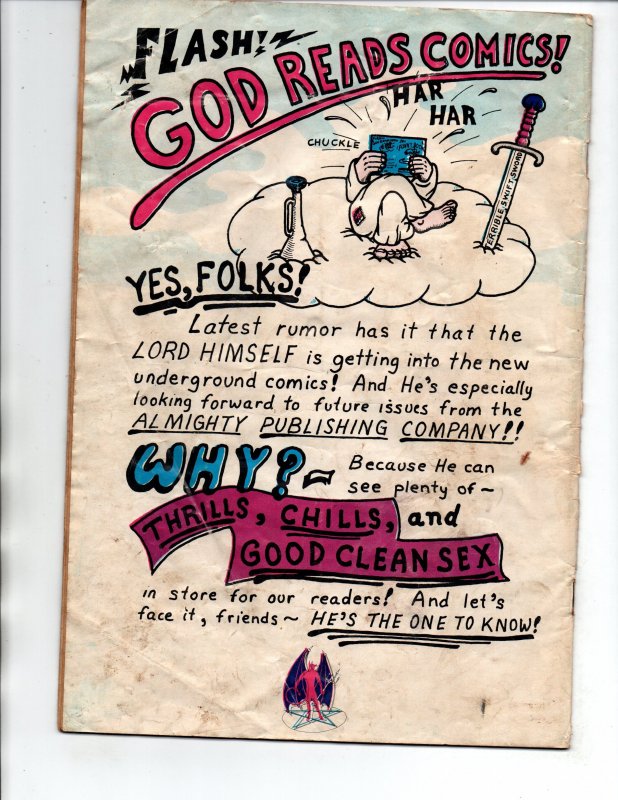 FLASH!
GOD READS COMICS!
HAR
HAR
CHUCKLE
TERRIBLE SWIFT SWORD
YES, FOLKS!
Latest rumor has it that the
LORD HIMSELF is getting into the new
underground comics! And He's especially
looking forward to future issues from the
ALMIGHTY PUBLISHING COMPANY!!
WHY?~ Because He can
see plenty of ~
THRILLS, CHILLS, and
GOOD CLEAN SEX
in store for our readers! And let's
face it, friends ~ HE'S THE ONE TO KNOW!